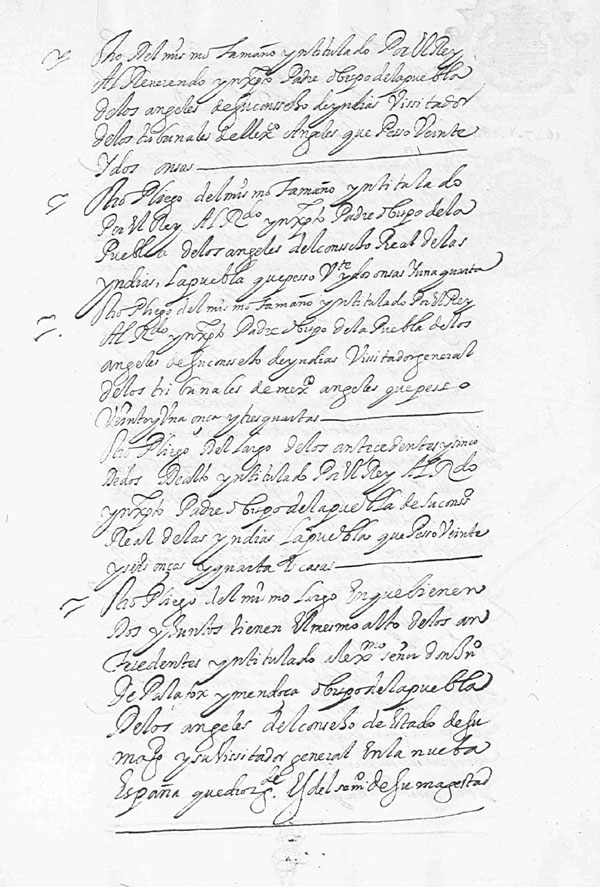 Otro Del mismo tamaño yntitulado Por El Rey
Al Reverendo yn xpto Padre obispo de la puebla
de los angeles de su consseho de yndias Vissitador
de los tribunales de Mexco Angeles que Pesso Veinte
Y dos onsas
Otro Pliego del mismo tamaño yntitulado
Por El Rey Al Rdo yn xpto Padre obispo de la
Puebla de los angeles del consseho Real de las
yndias, La puebla que pesso Vte y do onsas Y una quarta
Otro Pliego del mismo tamaño yntitulado Por El Rey
Al Rdo yn xpto Padre obispo de la Puebla de los
angeles de su consseho de yndias Vissitador general
de los tribunales de mexco angeles que pesso
Veinte y Una onça y tres quartas
Otro Pliego Del largo de los antecedentes y sinco
Dedos De alto yntitulado Por El Rey Al Rdo
yn xpto Padre obispo de la puebla de su conso
Real de las yndias La puebla que Pesso Veinte
y seis onças y quarta
Otro Pliego del mismo largo En que bienen
Dos y Juntos tienen El mesmo alto de los an
tecedentes yntitulado al exmo señor don Juo
De Palafox y mendoça obispo de la puebla
De los angeles del conseho de Estado de su
magd y su vissitador general En la nueba
España que dio Es del semo de su magestad